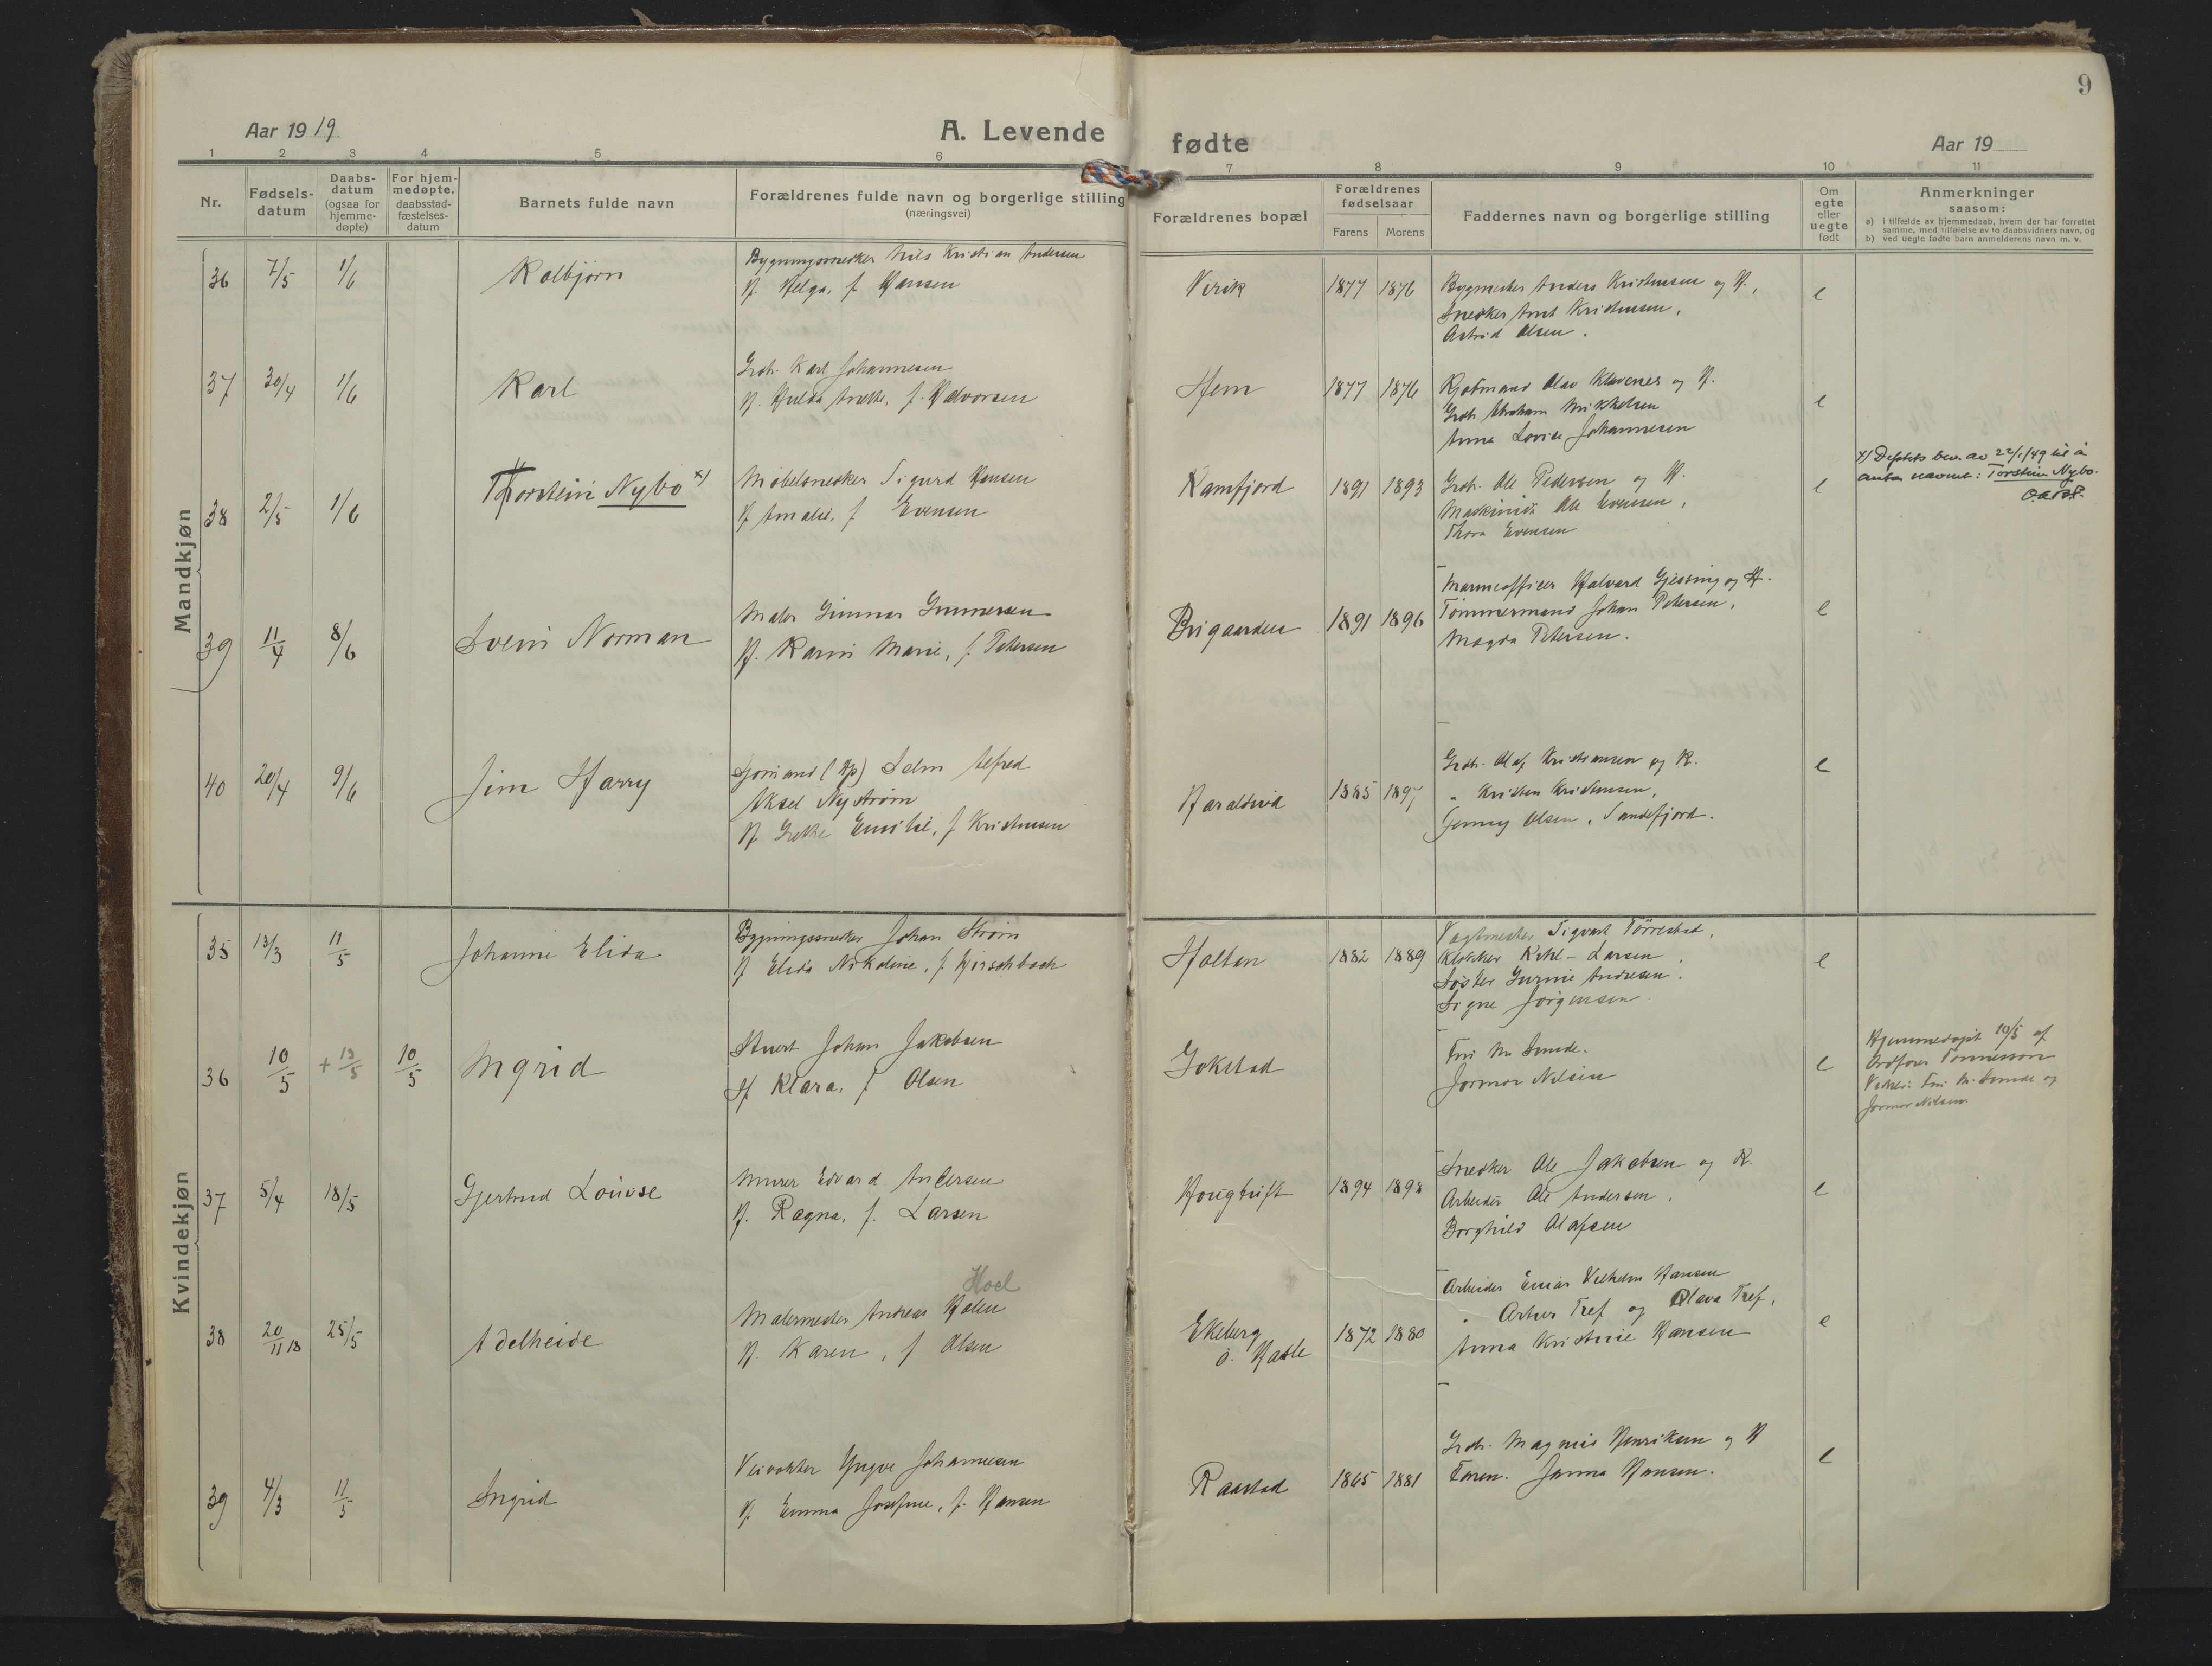 9
Aar 1919
A. Levende fødte
Aar 19
1 2 3 4 5 6 7 8 9 10 11
Nr.
Fødsels-
datum
Daabs-
datum
(ogsaa for
hjemme-
døpte)
For hjem-
medøpte,
daabsstad-
fæstelses-
datum
Barnets fulde navn
Forældrenes fulde navn og borgerlige stilling
(næringsvei)
Forældrenes bopæl
Forældrenes
fødselsaar
Farens Morens
Faddernes navn og borgerlige stilling
Om
egte
eller
uegte
født
Anmerkninger
saasom:
a) i tilfælde av hjemmedaab, hvem der har forrettet
samme, med tilføielse av to daabsvidners navn, og
b) ved uegte fødte barn anmelderens navn m. v.
Mandkjøn
36 7/5 1/6 Kolbjørn
Bygningssnedker Nils Kristian Andersen
H. Helga, f. Hansen
Virik 1877 1876
Bygmester Anders Kristensen og H.,
Snedker Arnt Kristensen,
Astrid Olsen.
e
37 30/4 1/6 Karl
Grdb. Karl Johannesen
H. Hulda Anette, f. Halvorsen
Hem 1877 1876
Kjøbmand Olav Klavenes og H.
Grdb. Abraham Mikkelsen
Anna Lovise Johannesen
e
38 2/5 1/6 Thorstein Nybo x)
Møbelsnedker Sigurd Hansen
H. Amalie, f. Evensen
Kamfjord 1891 1893
Grdb. Ole Pedersen og H.
Maskinist Ole Evensen,
Thora Evensen
e
x) Deptets bev. av 22/1/49 til å
anta navnet: Torstein Nybo.
39 11/4 8/6 Svein Norman
Maler Gunnar Gunnersen
H. Karin Marie, f. Petersen
Brigaarden 1891 1896
Marineofficer Halvard Gjessing og H.
Tømmermand Johan Petersen,
Magda Petersen.
e
40 20/4 9/6 Jim Harry
Sjømand (Kp) Selm Alfred
Aksel Nystrøm
H. Grethe Emilie, f. Kristensen
Haraldsrød 1885 1897
Grdb. Olaf Kristiansen og K.
" Kristen Kristensen,
Jenny Olsen, Sandefjord.
e
Kvindekjøn
35 13/3 11/5 Johanne Elida
Bygningssnedker Johan Strøm
H. Elida Nikoline, f. Herschbach
Holtan 1882 1889
Vagtmester Sigvart Tørrestad,
Klokker Kihl-Larsen
Søster Gurine Andresen.
Signe Jørgensen.
e
36 10/5 + 19/5 10/5 Ingrid
Stuert Johan Jakobsen
H. Klara, f. Olsen
Gokstad
Fru M. Sunde.
Jormor Nilsen
e
Hjemmedøpt 10/5 af
Ordfører Tønnesson
Vidner: Fru M. Sunde og
Jormor Nilsen
37 5/4 18/5 Gjertrud Louise
Murer Edvard Andersen
H. Ragna, f. Larsen
Hougtuft 1894 1898
Snedker Ole Jakobsen og K.
Arbeider Ole Andersen,
Borghild Olafsen
e
38 20/11 18 25/5 Adelheide
Hoel
Malermester Andreas Holen
H. Karen, f. Olsen
Ekeberg
ö. Hasle
1872 1880
Arbeider Einar Vilhelm Hansen
" Arthur Tref og Olava Tref,
Anna Kristine Hansen
e
39 4/3 11/5 Ingrid
Veivokter Yngve Johannesen
H. Emma Josefine, f. Hansen
Raastad 1865 1881
Grdb. Magnus Henriksen og H
Faren. Janna Hansen.
e